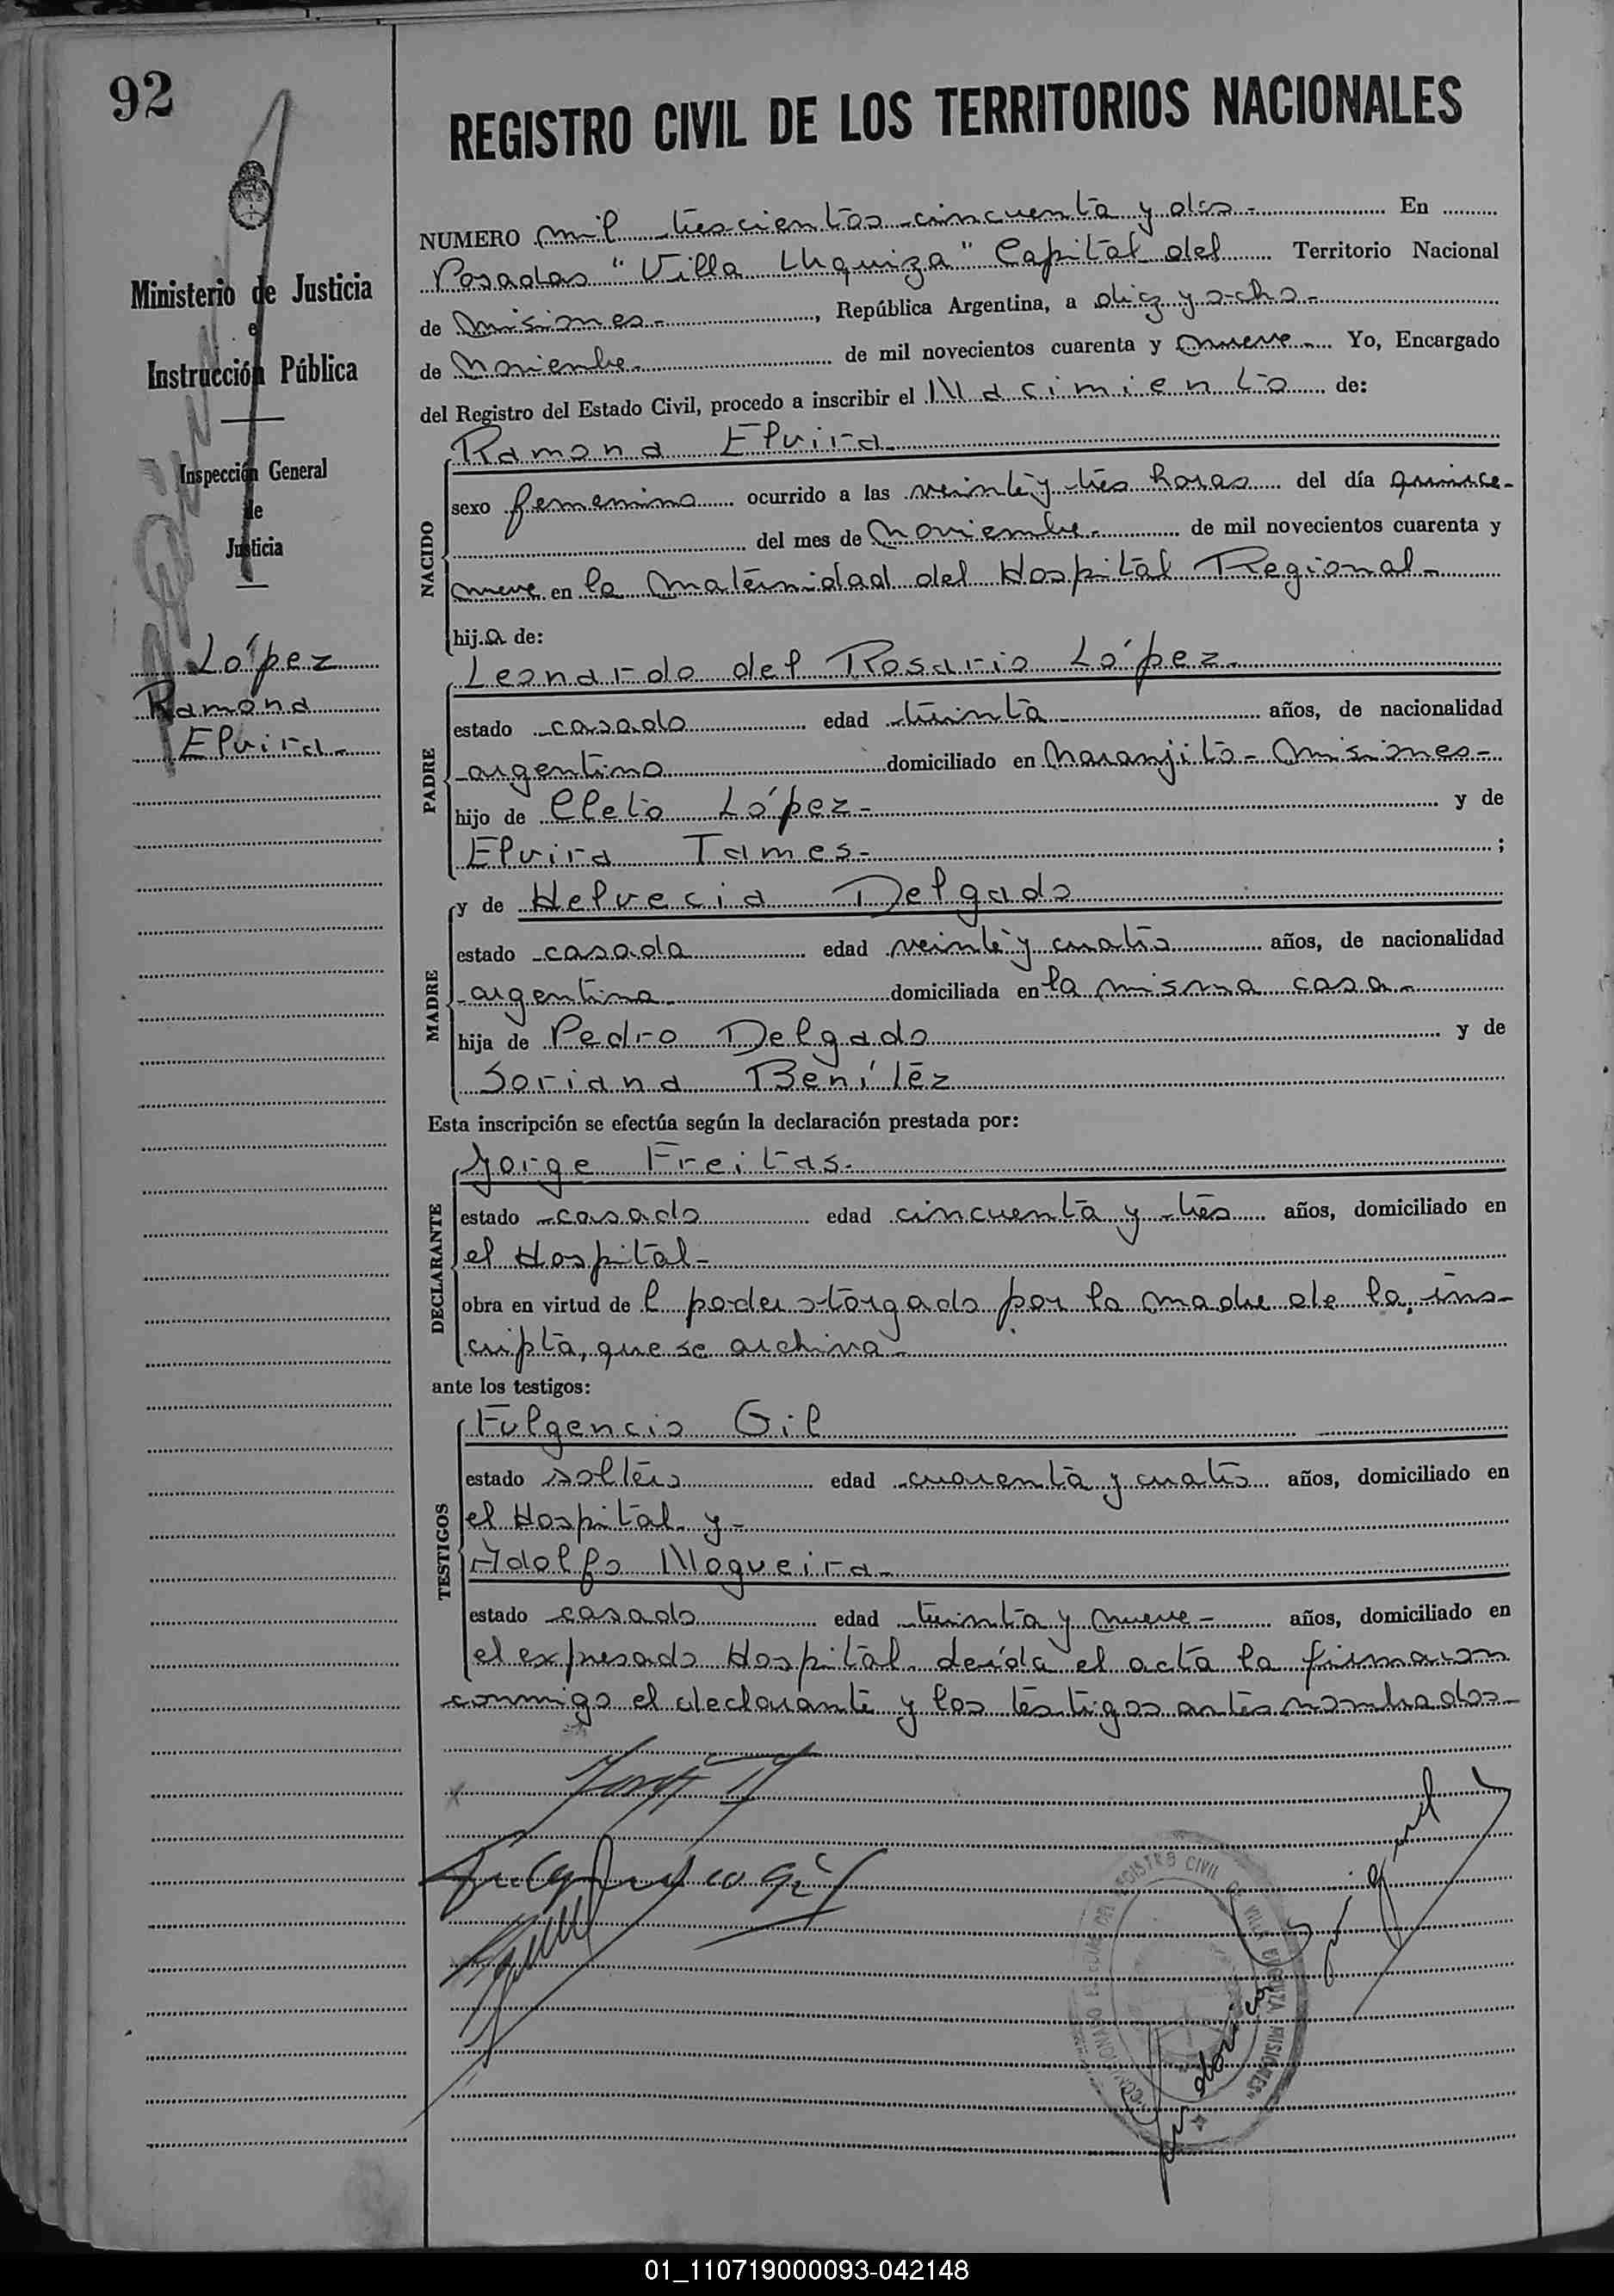 92
REGISTRO CIVIL DE LOS TERRITORIOS NACIONALES
Ministerio de Justicia
e
Instrucción Pública
Inspección General
de
Justicia
López
Ramona
Elvira-
NUMERO mil trescientos cincuenta y dos - En
Posadas "Villa Urquiza" Capital del Territorio Nacional
de Misiones-, República Argentina, a diez y ocho-
de Noviembre- de mil novecientos cuarenta y nueve- Yo, Encargado
del Registro del Estado Civil, procedo a inscribir el Nacimiento de:
Ramona Elvira-
NACIDO
sexo femenino ocurrido a las veinte y tres horas del día quince-
del mes de Noviembre- de mil novecientos cuarenta y
nueve en la Maternidad del Hospital Regional-
hija de:
Leonardo del Rosario López-
PADRE
estado casado edad treinta años, de nacionalidad
argentino domiciliado en Naranjito - Misiones-
hijo de Cleto López- y de
Elvira Tames- ;
y de Helvecia Delgado
MADRE
estado casada edad veinte y cuatro años, de nacionalidad
argentina domiciliada en la misma casa-
hija de Pedro Delgado y de
Soriana Benítez
Esta inscripción se efectúa según la declaración prestada por:
Jorge Freitas-
DECLARANTE
estado casado edad cincuenta y tres años, domiciliado en
el Hospital-
obra en virtud de l poder otorgado por la madre de la ins-
cripta, que se archiva-
ante los testigos:
Fulgencio Gil
TESTIGOS
estado soltero edad cuarenta y cuatro años, domiciliado en
el Hospital y-
Adolfo Nogueira-
estado casado edad treinta y nueve- años, domiciliado en
el expresado Hospital. Leída el acta la firmaron
conmigo el declarante y los testigos antes nombrados-
Fulgencio Gil
REGISTRO CIVIL DE VILLA URQUIZA MISIONES
01_110719000093-042148